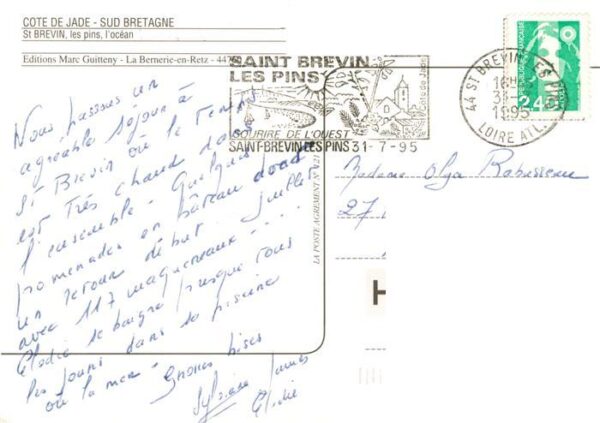 COTE DE JADE - SUD BRETAGNE
St BREVIN, les pins, l'océan
Editions Marc Guitteny - La Bernerie-en-Retz - 447
SAINT BREVIN
LES PINS
Côte de Jade
SOURIRE DE L'OUEST
SAINT-BREVIN LES PINS 31-7-95
44 ST BREVIN LES
1995
LOIRE ATL.
REPUBLIQUE FRANÇAISE
2,40
LA POSTE AGREMENT N°
Nous passons un
agréable séjour à
St Brevin où le temps
est très chaud dans
l'ensemble - Quelques
promenades en bateau dont
un retour début juillet
avec 117 maquereaux - ...
Elodie se baigne presque tous
les jours dans la piscine
ou la mer - Grosses bises
Sylviane James
Elodie
Madame Olga Rabusseau
27
H